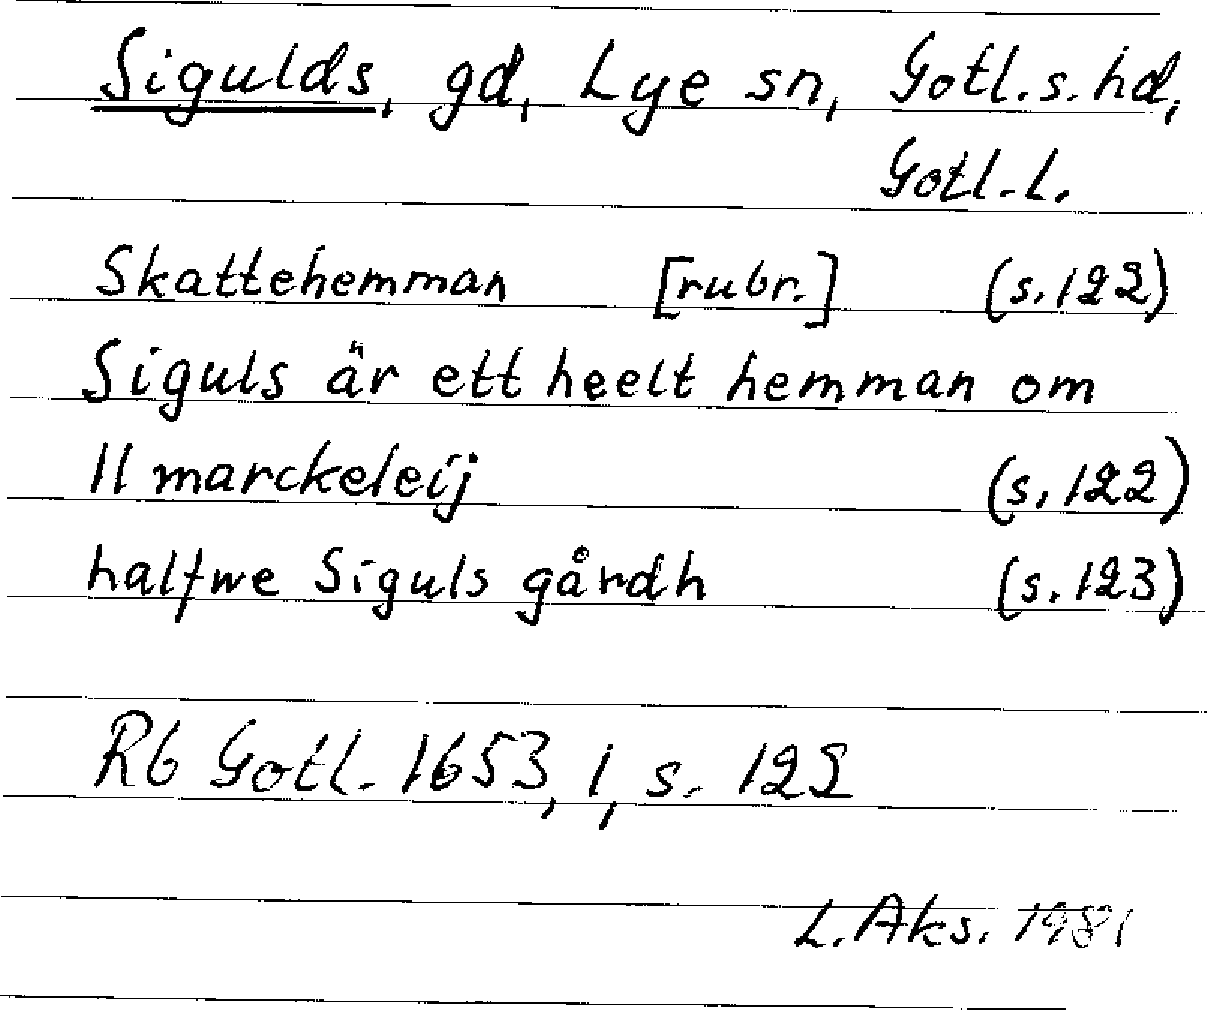 Sigulds, gd, Lye sn, Gotl.s.hd,
Gotl.l.
Skattehemman [rubr.] (s.122)
Siguls är ett heelt hemman om
11 marckeleij (s.122)
halfwe Siguls gårdh (s.123)
Rb Gotl. 1653, 1, s. 122
L.Aks. 1981